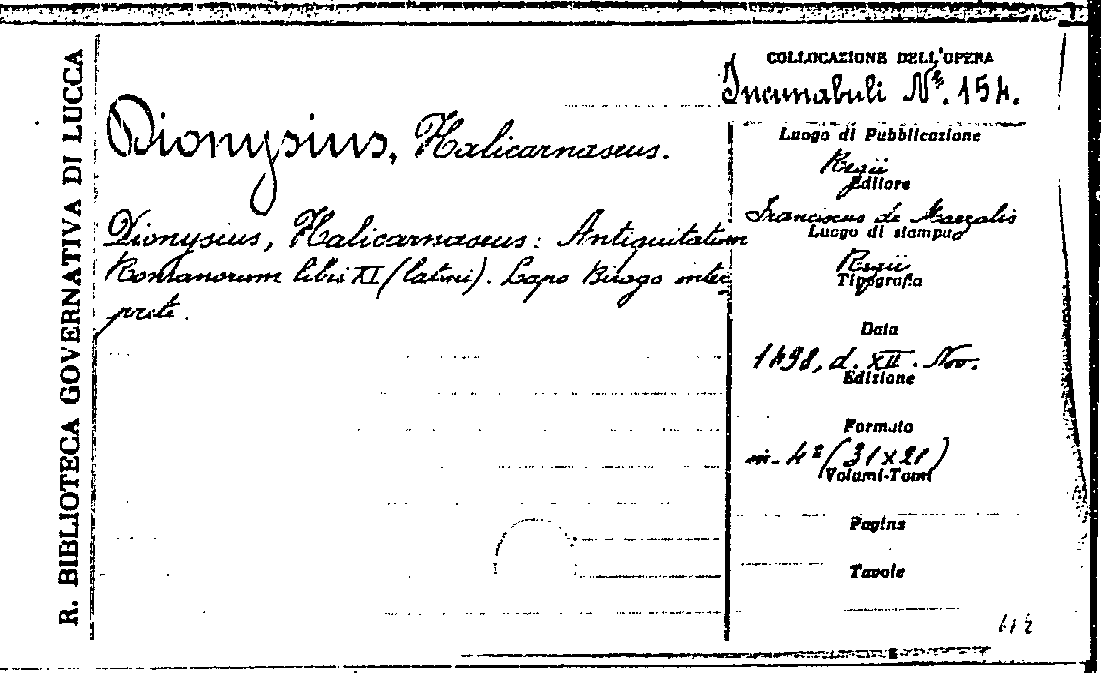 R. BIBLIOTECA GOVERNATIVA DI LUCCA
Dionysius, Halicarnaseus.
Dionysius, Halicarnaseus: Antiquitatum
Romanorum libri XI (latini). Lapo Birago inter
prete.
COLLOCAZIONE DELL'OPERA
Incunabuli Nº. 154.
Luogo di Pubblicazione
Regii
Editore
Franciscus de Mazalis
Luogo di stampa
Regii
Tipografia
Data
1498, d. XII. Nov.
Edizione
Formato
in-4º (31x21)
Volumi-Tomi
Pagine
Tavole